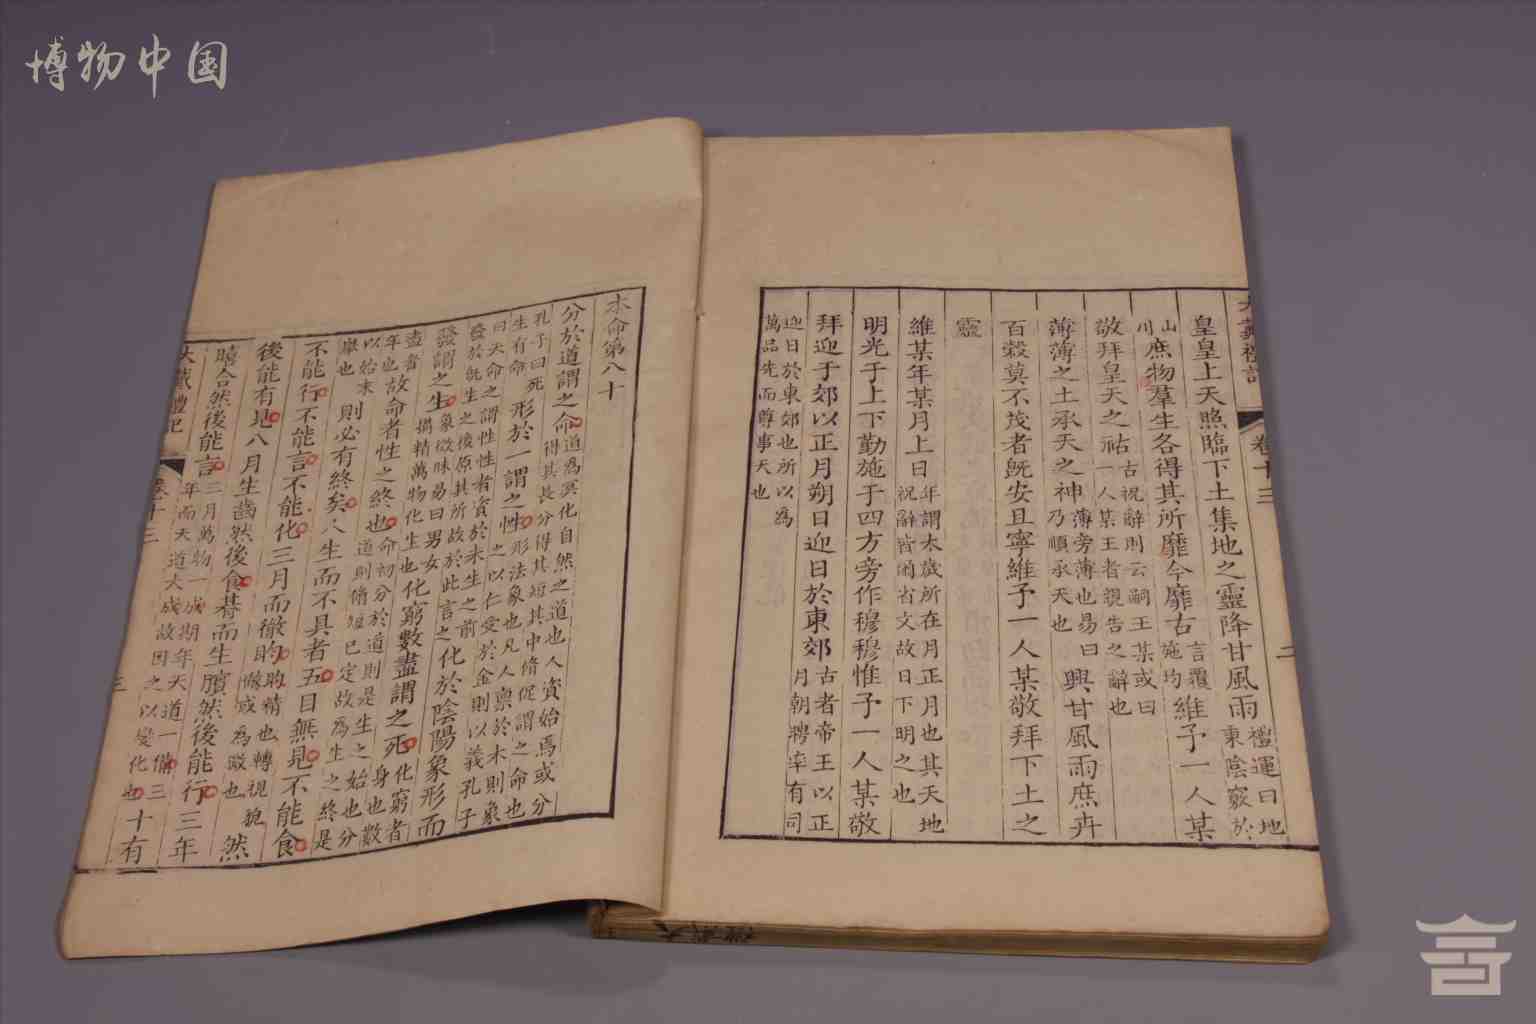 博物中国
大戴禮記 卷十三 二
皇皇上天照臨下土集地之靈降甘風雨禮運曰地東陰竅於
山川庶物羣生各得其所靡今靡古言覆施均維予一人某
敬拜皇天之祜古祝辭則云嗣王某或曰一人某王者親告之辭也
薄薄之土承天之神薄旁薄也易曰乃順承天也興甘風雨庶卉
百穀莫不茂者既安且寧維予一人某敬拜下土之
靈
維某年某月上日年謂太歲所在月正月也其天地祝辭皆尚省文故曰下明之也
明光于上下勤施于四方旁作穆穆惟予一人某敬
拜迎于郊以正月朔日迎日於東郊古者帝王以正月朝聘率有司
迎日於東郊也所以為萬品先而尊事天也
本命第八十
分於道謂之命道為冥化自然之道也人資始焉或分得其長分得其短其中脩促謂之命也
孔子曰死生有命形於一謂之性形法象也凡人稟於木則象之以仁受於金則以義孔子
曰天命之謂性性者資於未生之前發於既生之後原其所故於此言之化於陰陽象形而
發謂之生象徵昧易曰男女搆精萬物化生也化窮數盡謂之死化窮者身也數
盡者年也故命者性之終也命初分於道則是生之始也分道則脩短已定故為生之終是
以始末舉也則必有終矣人生而不具者五目無見不能食
不能行不能言不能化三月而徹盷盷精也轉視貌然
後能有見八月生齒然後食朞而生臏然後能行三年
𦞤合然後能言三月萬物一成期年天道一備三年而天道大成故因之以變化也十有
大戴禮記 卷十三 三